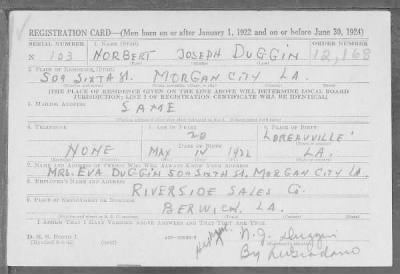 REGISTRATION CARD—(Men born on or after January 1, 1922 and on or before June 30, 1924)
SERIAL NUMBER 1. NAME (Print) ORDER NUMBER
N 103 NORBERT JOSEPH DUGGIN 12,168
(First) (Middle) (Last)
2. PLACE OF RESIDENCE (Print)
509 SIXTH ST. MORGAN CITY LA.
(THE PLACE OF RESIDENCE GIVEN ON THE LINE ABOVE WILL DETERMINE LOCAL BOARD
JURISDICTION; LINE 2 OF REGISTRATION CERTIFICATE WILL BE IDENTICAL)
3. MAILING ADDRESS
SAME
4. TELEPHONE 5. AGE IN YEARS 6. PLACE OF BIRTH
20 LOREAUVILLE
DATE OF BIRTH
NONE MAY 14 1922 LA.
7. NAME AND ADDRESS OF PERSON WHO WILL ALWAYS KNOW YOUR ADDRESS
MRS. EVA DUGGIN 509 SIXTH ST. MORGAN CITY LA.
8. EMPLOYER'S NAME AND ADDRESS
RIVERSIDE SALES Co.
9. PLACE OF EMPLOYMENT OR BUSINESS
BERWICK, LA.
I AFFIRM THAT I HAVE VERIFIED ABOVE ANSWERS AND THAT THEY ARE TRUE.
D. S. S. FORM 1
N. J. Duggin
By